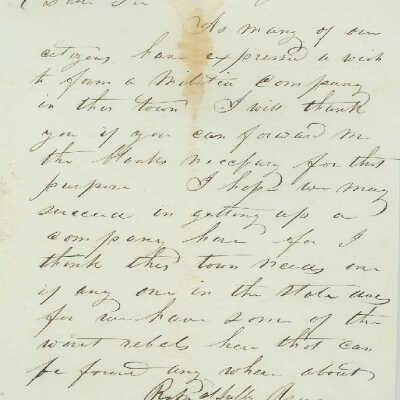 Dear Sir
As many of our
citizens have expressed a wish
to form a Militia Company
in this town I will thank
you if you can forward me
the blanks necessary for that
purpose I hope we may
succeed in getting up a
company here for I
think this town needs one
if any one in the State does
for we have some of the
worst rebels here that can
be found any where about
Respectfully Yours